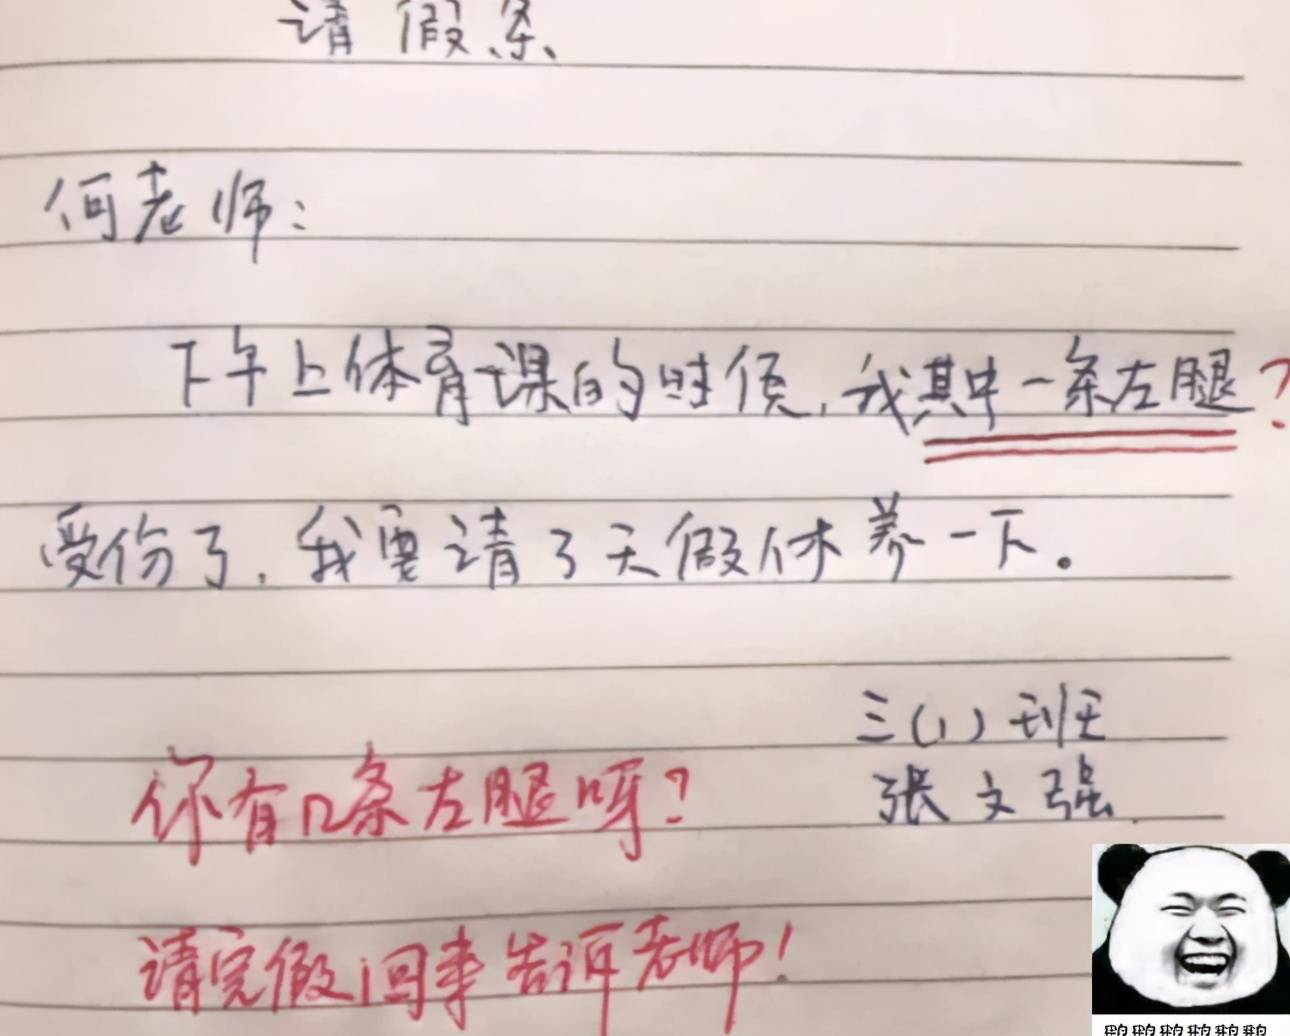 请假条
何老师：
下午上体育课的时候，我其中一条左腿？
受份了，我要请3天假休养一下。
三(1)班
张文强
你有几条左腿呀？
请完假回来告诉老师！
鹅鹅鹅鹅鹅鹅